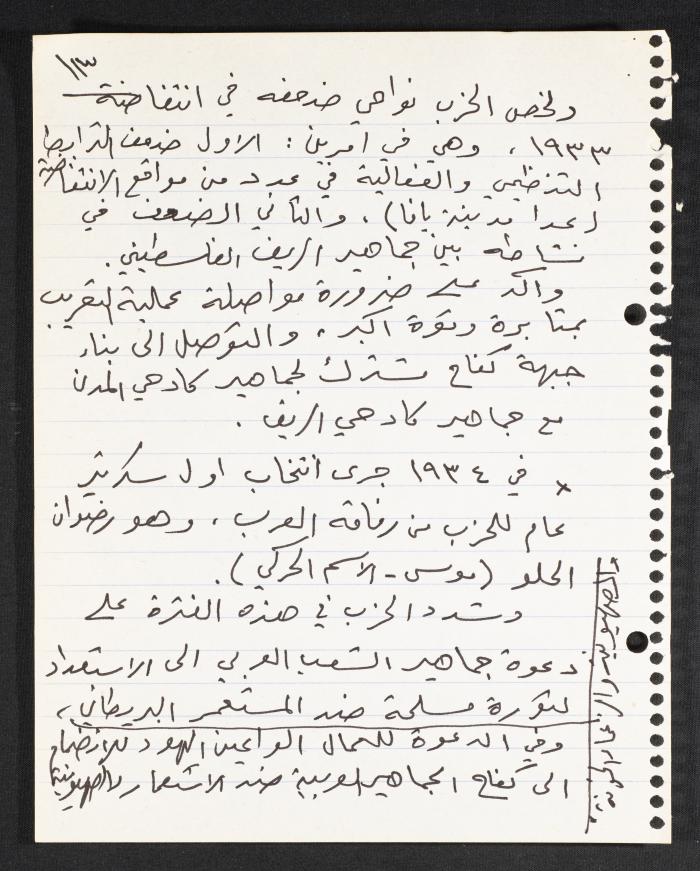 ١٣/
ولخص الحزب نواحي ضعفه في انتفاضة
١٩٣٣، وهي في امرين: الاول ضعف الترابط
التنظيمي والفعالية في عدد من مواقع الانتفاضة
(عدا مدينة يافا)، والثاني الضعف في
نشاطه بين جماهير الريف الفلسطيني.
واكد على ضرورة مواصلة عملية التعريب
بمثابرة وبقوة اكبر، والتوصل الى بناء
جبهة كفاح مشترك لجماهير كادحي المدن
مع جماهير كادحي الريف.
× في ١٩٣٤ جرى انتخاب اول سكرتير
عام للحزب من رفاقه العرب، وهو رضوان
الحلو (موسى - الاسم الحركي).
وشدد الحزب في هذه الفترة على
دعوة جماهير الشعب العربي الى الاستعداد
لثورة مسلحة ضد المستعمر البريطاني،
وفي الدعوة للعمال الواعين اليهود للانضمام
الى كفاح الجماهير العربية ضد الاستعمار والصهيونية